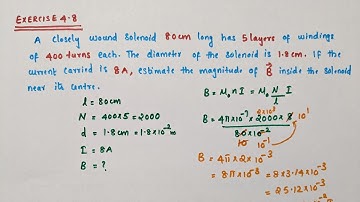 EXERCISE 4.8
A closely wound solenoid 80cm long has 5 layers of windings
of 400 turns each. The diametr of the solenoid is 1.8cm. If the
current carried is 8A, estimate the magnitude of B⃗ inside the solenoid
near its centre.
l = 80cm
N = 400x5 = 2000
d = 1.8cm = 1.8x10⁻² m
I = 8A
B = ?
B = μ₀ n I = μ₀ N/l I
B = 4π x 10⁻⁷ x 2000 x 8 / 80 x 10⁻²
2x10³
10¹
10⁻¹
B = 4π x 2 x 10⁻³
= 8π x 10⁻³ = 8 x 3.14 x 10⁻³
= 25.12 x 10⁻³